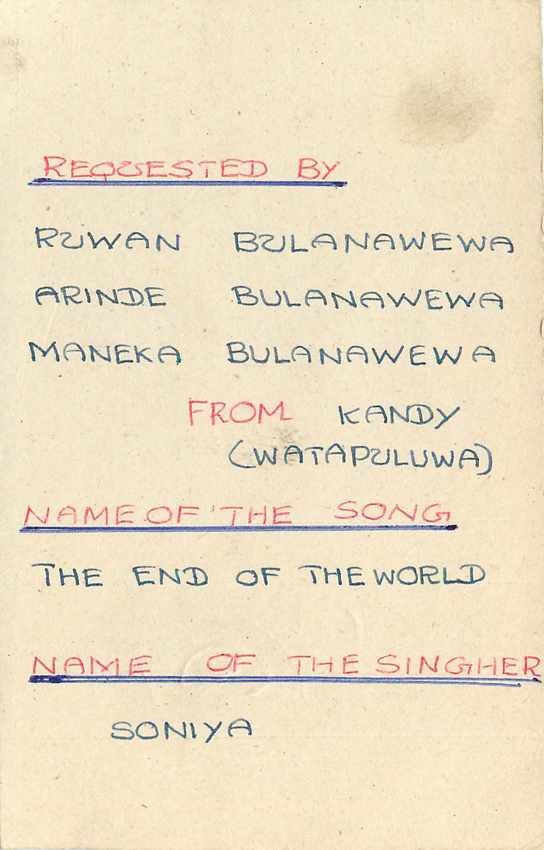 REQUESTED BY
RUWAN BULANAWEWA
ARINDE BULANAWEWA
MANEKA BULANAWEWA
FROM KANDY
(WATAPULUWA)
NAME OF THE SONG
THE END OF THE WORLD
NAME OF THE SINGHER
SONIYA